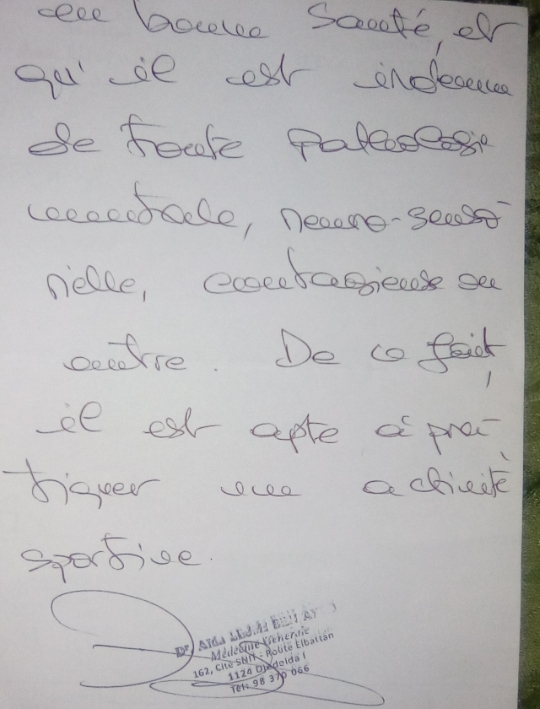 en bonne santé, et
qu'il est indemne
de toute pathologie
mentale, neuro-senso-
rielle, contagieuse ou
autre. De ce fait,
il est apte à pra-
tiquer une activité
sportive.
Dr
Médecine Générale
162, Cité SNIT - Route Elbattan
1124 Djedeida
Tél: 98 379 066